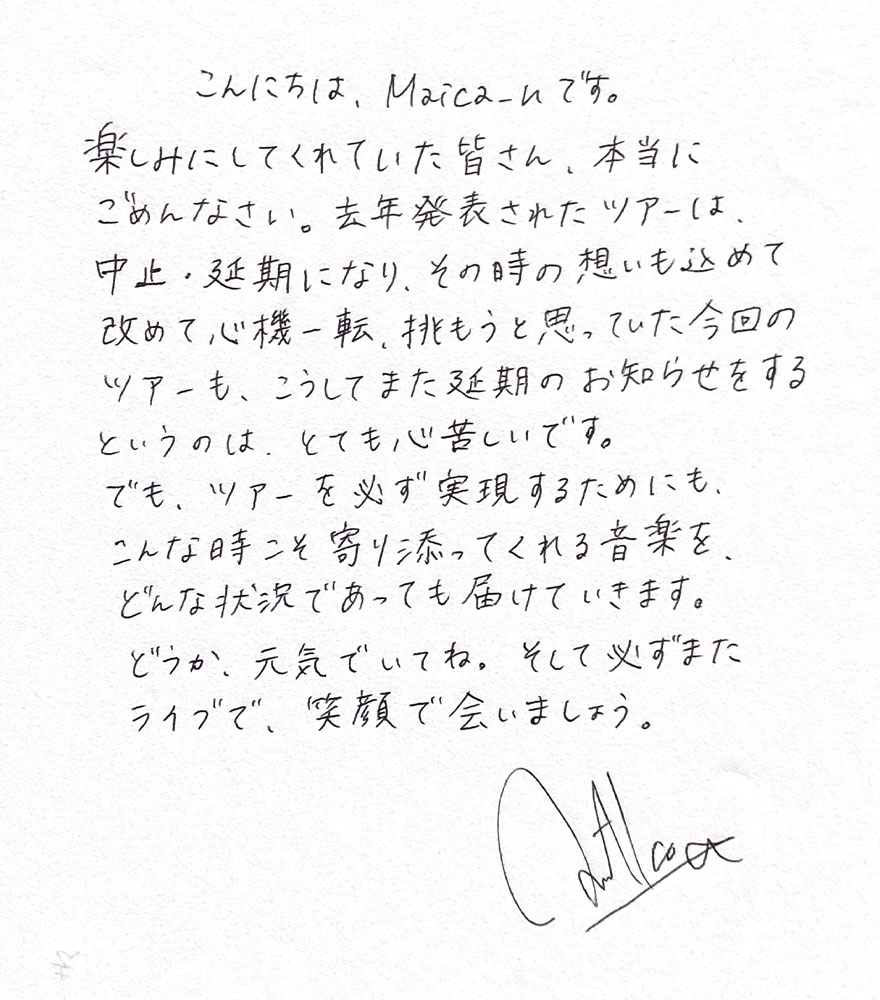 こんにちは、Maica_nです。
楽しみにしてくれていた皆さん、本当に
ごめんなさい。去年発表されたツアーは、
中止・延期になり、その時の想いも込めて
改めて心機一転、挑もうと思っていた今回の
ツアーも、こうしてまた延期のお知らせをする
というのは、とても心苦しいです。
でも、ツアーを必ず実現するためにも、
こんな時こそ寄り添ってくれる音楽を、
どんな状況であっても届けていきます。
どうか、元気でいてね。そして必ずまた
ライブで、笑顔で会いましょう。